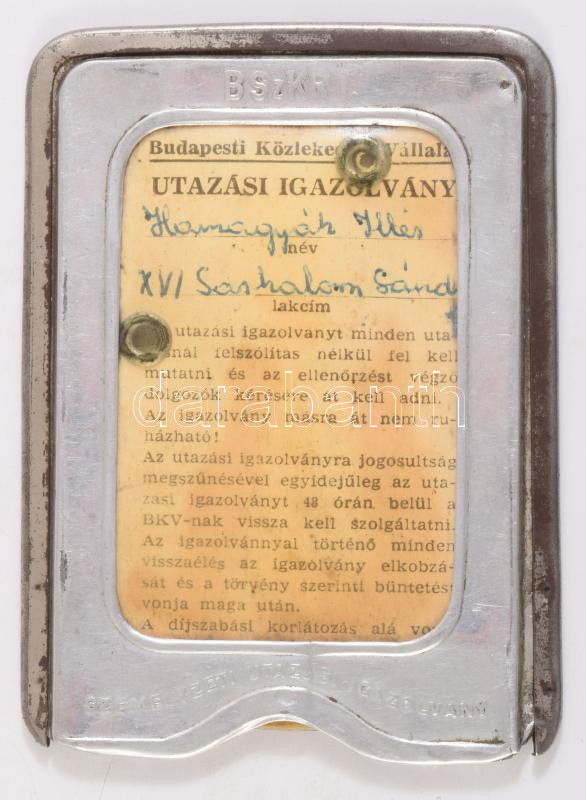 BSzKRT
Budapesti Közleke Vállala
UTAZÁSI IGAZOLVÁNY
Hamagyák Illés
név
XVI Sashalom Sánd
lakcím
utazási igazolványt minden uta-
snál felszólítás nélkül fel kell
mutatni és az ellenőrzést végző
dolgozók kérésére át kell adni.
darabanth
Az igazolvány másra át nem ru-
házható!
Az utazási igazolványra jogosultság
megszűnésével egyidejűleg az uta-
zási igazolványt 48 órán belül a
BKV-nak vissza kell szolgáltatni.
Az igazolvánnyal történő minden
visszaélés az igazolvány elkobzá-
sát és a törvény szerinti büntetést
vonja maga után.
A díjszabási korlátozás alá vo
SZEMÉLYZETI UTAZÁSI IGAZOLVÁNY